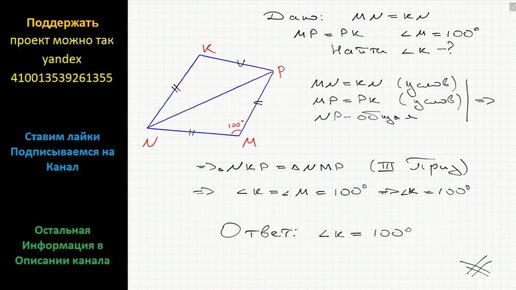 Поддержать
проект можно так
yandex
410013539261355
Ставим лайки
Подписываемся на
Канал
Остальная
Информация в
Описании канала
K
P
N
M
100°
Дано: MN = KN
MP = PK ∠M = 100°
Найти ∠K - ?
MN = KN (услов)
MP = PK (услов) | =>
NP - общая
=> △NKP = △NMP (III приз)
=> ∠K = ∠M = 100° => ∠K = 100°
Ответ: ∠K = 100°